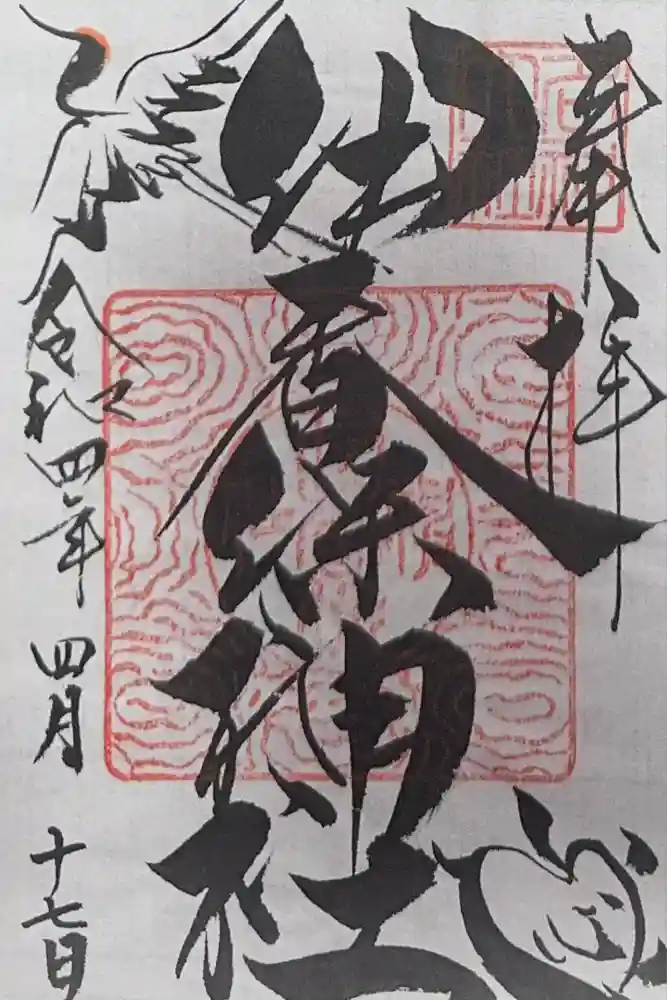 奉拝
伊香保神社
令和四年
四月
十七日